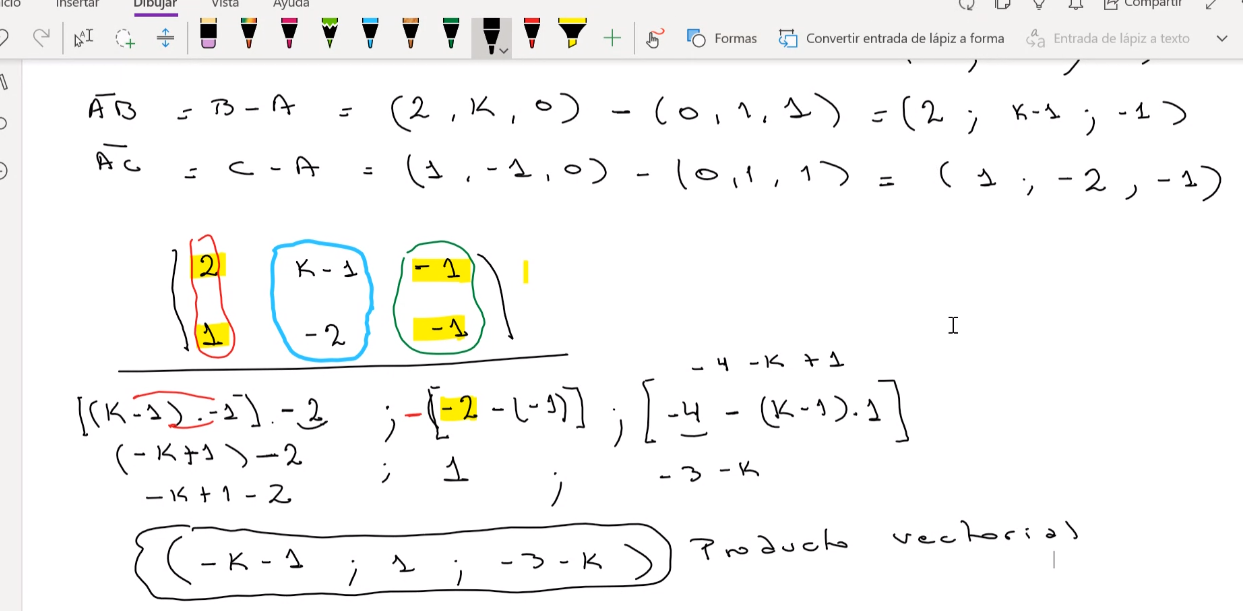 Insertar Dibujar Vista Ayuda Compartir
Formas Convertir entrada de lápiz a forma Entrada de lápiz a texto
AB = B - A = (2, K, 0) - (0, 1, 1) = (2 ; K-1 ; -1)
AC = C - A = (1, -1, 0) - (0, 1, 1) = (1 ; -2, -1)
2 K-1 -1
1 -2 -1
-4 -K +1
[(K-1).-1].-2 ; -[-2-(-1)] ; [-4 - (K-1).1]
(-K+1)-2 ; 1 ; -3 -K
-K+1-2
(-K-1 ; 1 ; -3-K) Producto vectorial